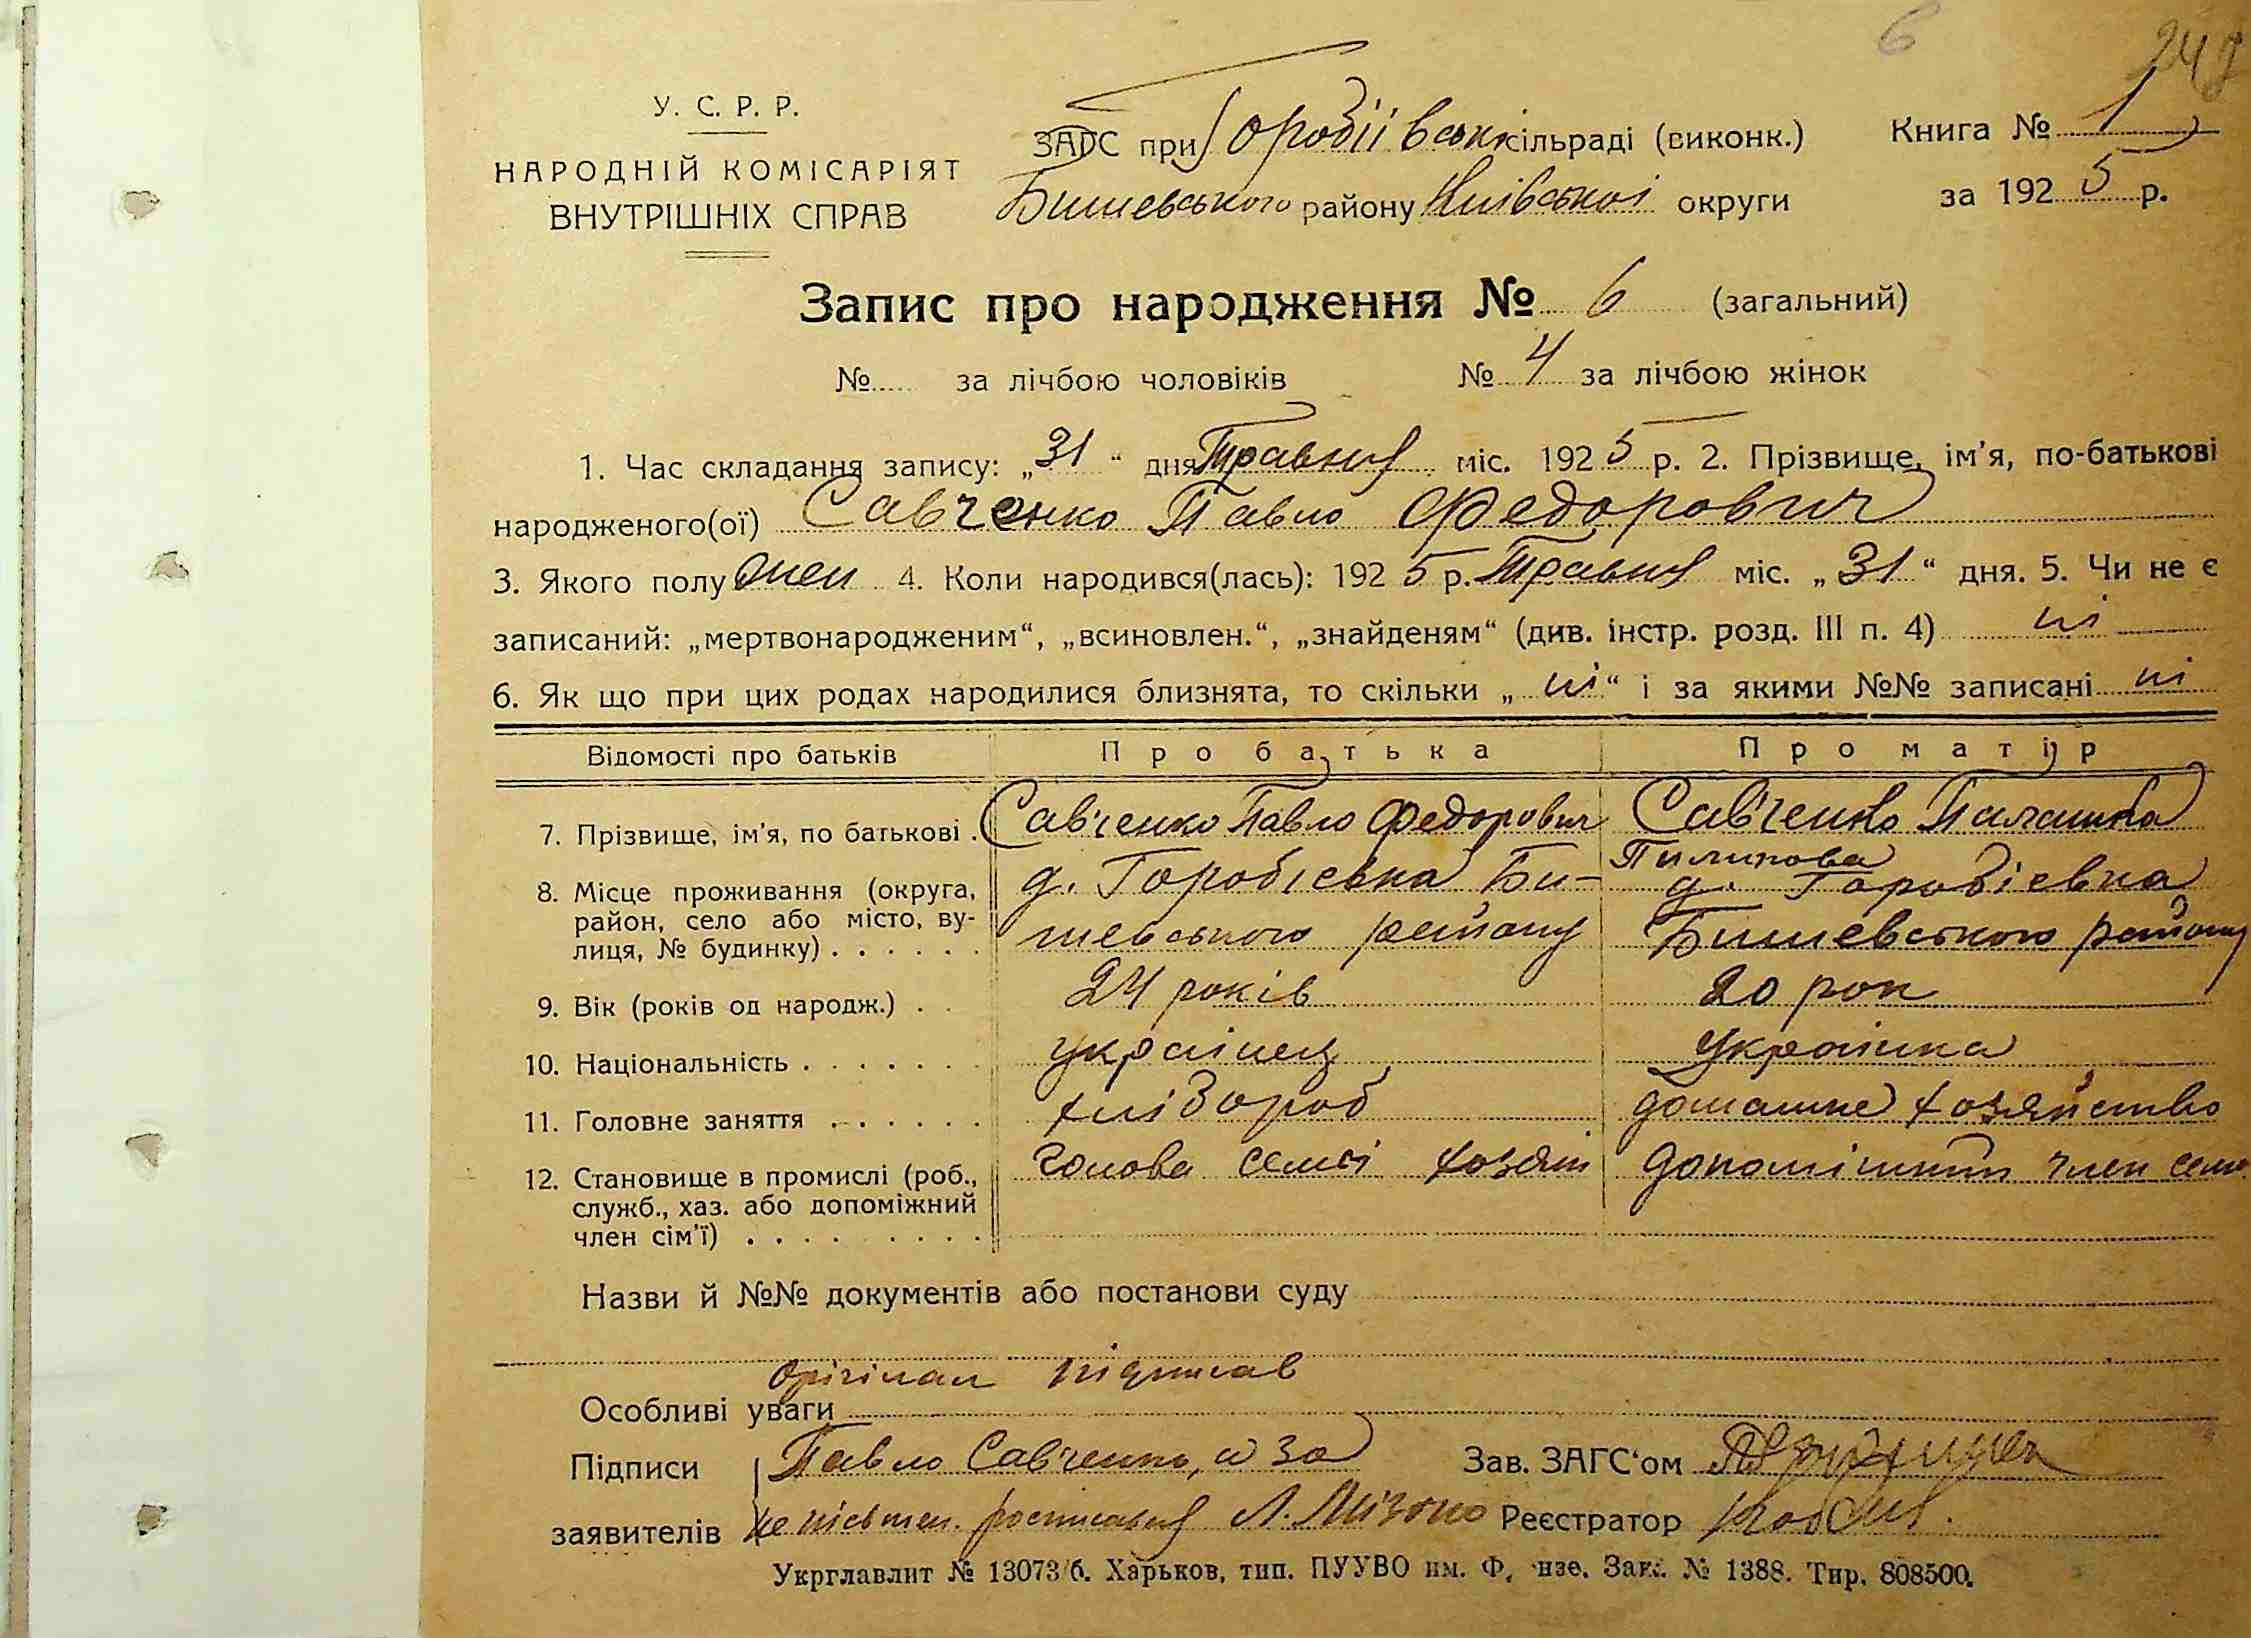 6
У. С. Р. Р.
НАРОДНІЙ КОМІСАРІЯТ
ВНУТРІШНІХ СПРАВ
ЗАГС при Горобіївські сільраді (виконк.)
Бишевського району Київської округи
Книга № 1
за 1925 р.
Запис про народження № 6 (загальний)
№ за лічбою чоловіків № 4 за лічбою жінок
1. Час складання запису: „31“ дня Травня міс. 1925 р. 2. Прізвище, ім'я, по-батькові
народженого(ої) Савченко Павло Федорович
3. Якого полу жен 4. Коли народився(лась): 1925 р. Травня міс. „31“ дня. 5. Чи не є
записаний: „мертвонародженим“, „всиновлен.“, „знайденям“ (див. інстр. розд. III п. 4) ні
6. Як що при цих родах народилися близнята, то скільки „ні“ і за якими №№ записані ні
Відомості про батьків Про батька Про матір
7. Прізвище, ім'я, по батькові . Савченко Павло Федорович Савченко Палашка
Пилипова
8. Місце проживання (округа, д. Горобієвка Би- д. Горобієвка
район, село або місто, ву- шевського району Бишевського району
лиця, № будинку) . . . . . .
9. Вік (років од народж.) . . 24 років 20 рок
10. Національність . . . . . . . українец Українка
11. Головне заняття . . . . . . хлібороб домашнє хозяйство
12. Становище в промислі (роб., голова семєі хозяїн допоміжний член семі
служб., хаз. або допоміжний
член сім'ї) . . . . . . . . .
Назви й №№ документів або постанови суду
Орігінал підписав
Особливі уваги
Підписи Павло Савченко, а за Зав. ЗАГС'ом
заявителів не письмен. росписався Л. Реєстратор
Укрглавлит № 13073/б. Харьков, тип. ПУУВО им. Ф. нзе. Зак. № 1388. Тир. 808500.